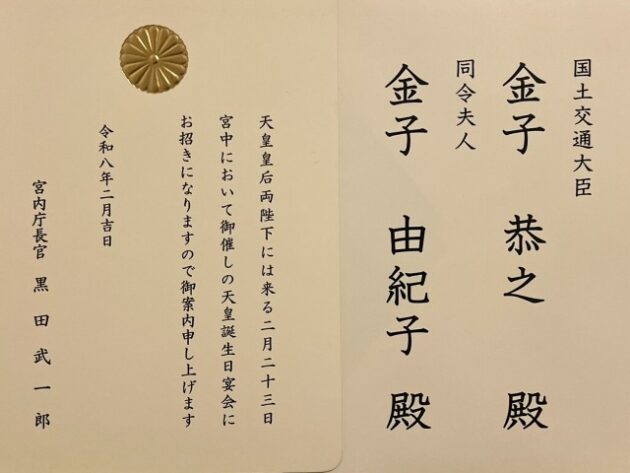 国土交通大臣
金子 恭之 殿
同令夫人
金子 由紀子 殿
天皇皇后両陛下には来る二月二十三日
宮中において御催しの天皇誕生日宴会に
お招きになりますので御案内申し上げます
令和八年二月吉日
宮内庁長官 黒田武一郎